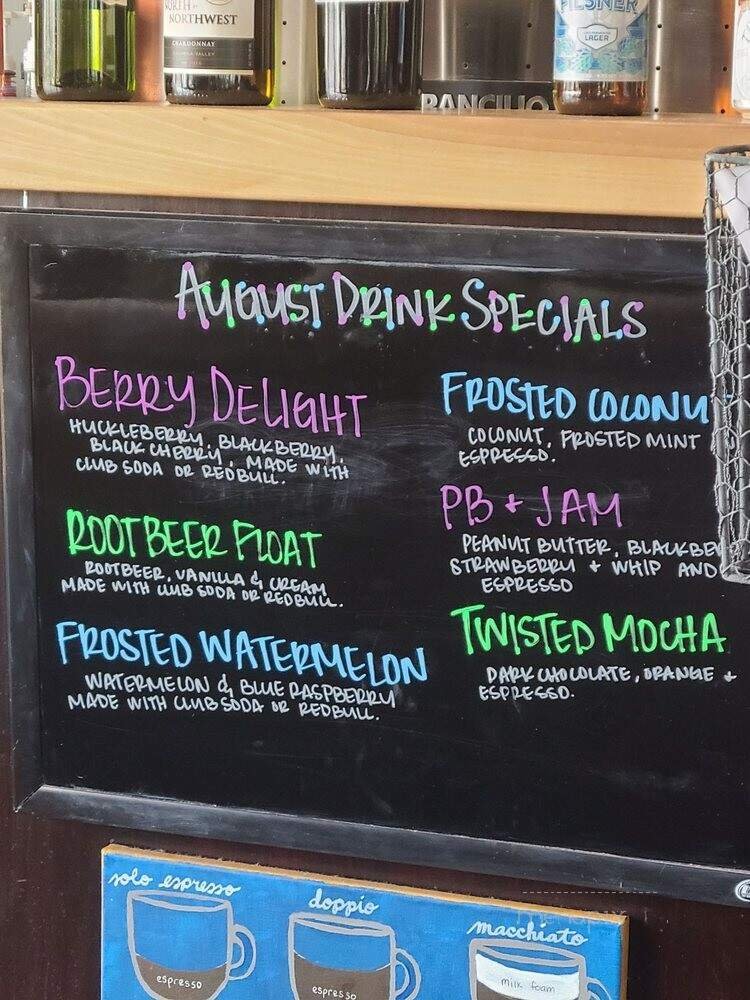 NORTH by
NORTHWEST
CHARDONNAY
COLUMBIA VALLEY
PILSNER
LAGER
RANCILIO
AUGUST DRINK SPECIALS
BERRY DELIGHT
HUCKLEBERRY, BLACKBERRY,
BLACK CHERRY, MADE WITH
CLUB SODA OR REDBULL.
ROOTBEER FLOAT
ROOTBEER, VANILLA & CREAM
MADE WITH CLUB SODA OR REDBULL.
FROSTED WATERMELON
WATERMELON & BLUE RASPBERRY
MADE WITH CLUB SODA OR REDBULL.
FROSTED COCONU
COCONUT, FROSTED MINT
ESPRESSO.
PB + JAM
PEANUT BUTTER, BLACKBE
STRAWBERRY + WHIP AND
ESPRESSO
TWISTED MOCHA
DARK CHOCOLATE, ORANGE +
ESPRESSO.
solo espresso
espresso
doppio
espresso
macchiato
milk foam